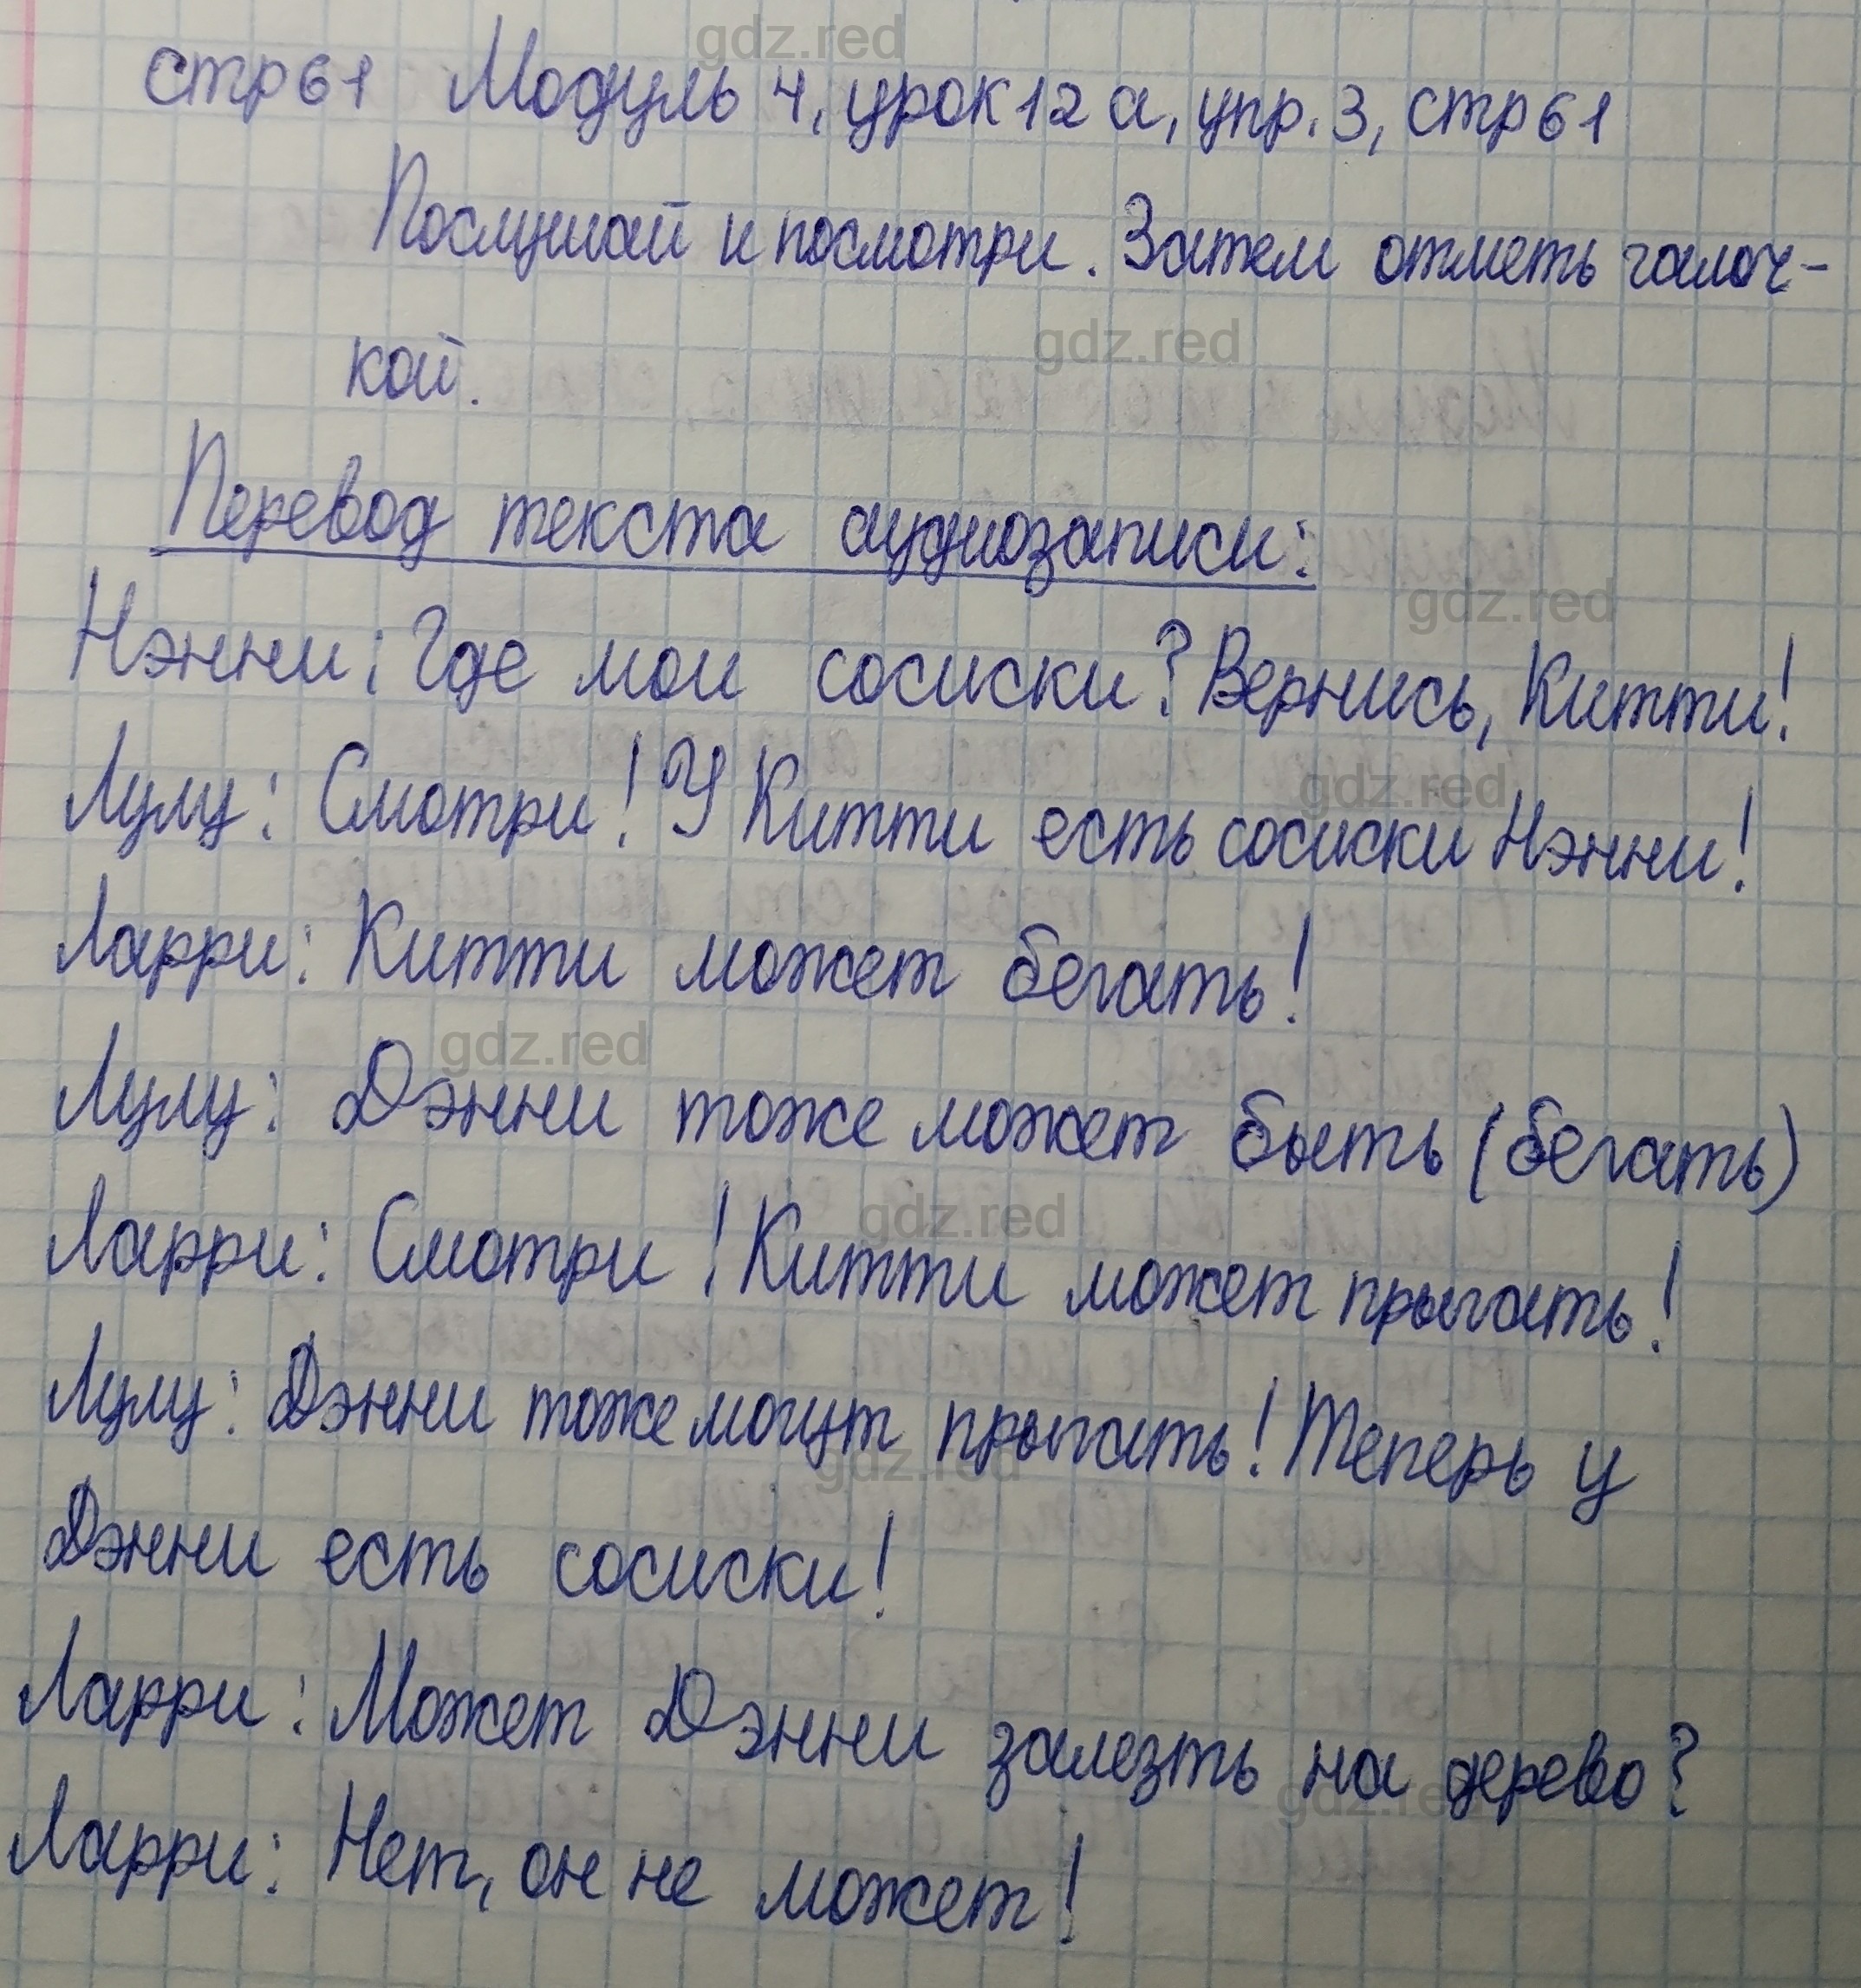 стр 61 Модуль 4, урок 12 а, упр. 3, стр 61
Послушай и посмотри. Затем отметь галоч-
кой.
Перевод текста аудиозаписи:
Нэнни: Где мои сосиски? Вернись, Китти!
Лулу: Смотри! У Китти есть сосиски Нэнни!
Ларри: Китти может бегать!
Лулу: Дэнни тоже может быть (бегать)
Ларри: Смотри! Китти может прыгать!
Лулу: Дэнни тоже могут прыгать! Теперь у
Дэнни есть сосиски!
Ларри: Может Дэнни залезть на дерево?
Ларри: Нет, он не может!
gdz.red
gdz.red
gdz.red
gdz.red
gdz.red
gdz.red
gdz.red
gdz.red